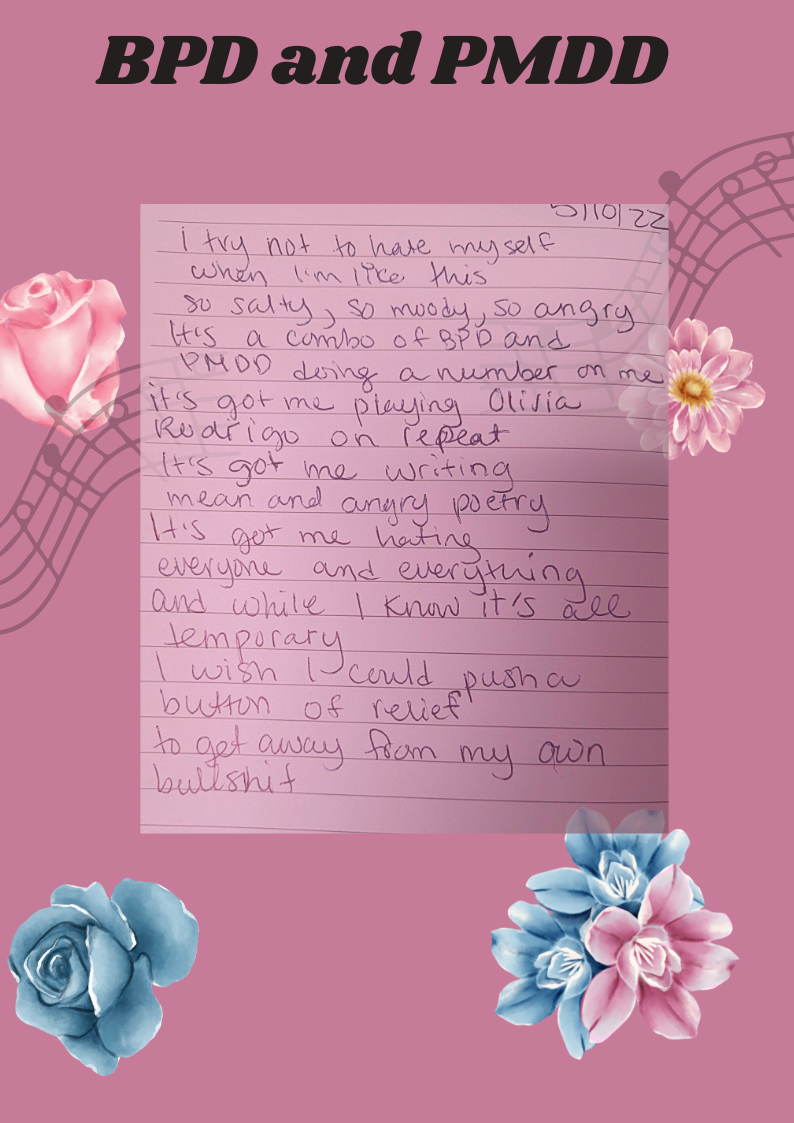 BPD and PMDD
5/10/22
i try not to hate myself
when I'm like this
so salty, so moody, so angry
It's a combo of BPD and
PMDD doing a number on me
it's got me playing Olivia
Rodrigo on repeat
It's got me writing
mean and angry poetry
It's got me hating
everyone and everything
and while I know it's all
temporary
I wish I could push a
button of relief
to get away from my own
bullshit